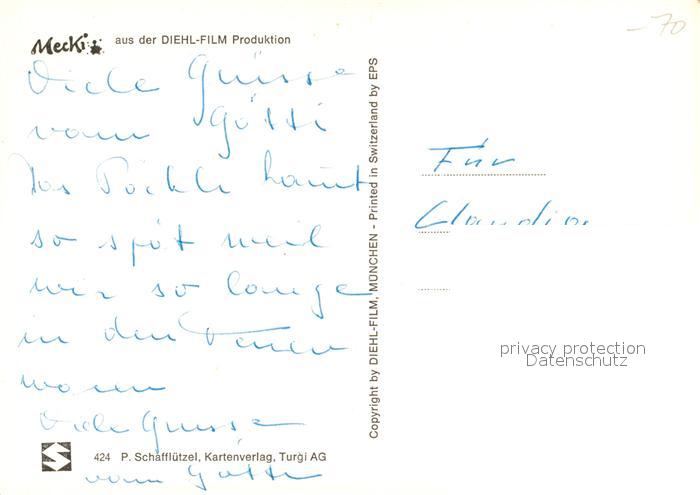 Mecki aus der DIEHL-FILM Produktion
-70
Viele Grüsse
vom Götti
Das Päckli kommt
so spät weil
wir so lange
in den Ferien
waren
Viele Grüsse
vom Götti
424 P. Schafflützel, Kartenverlag, Turgi AG
Copyright by DIEHL-FILM, MÜNCHEN - Printed in Switzerland by EPS
Für
Claudia
privacy protection
Datenschutz